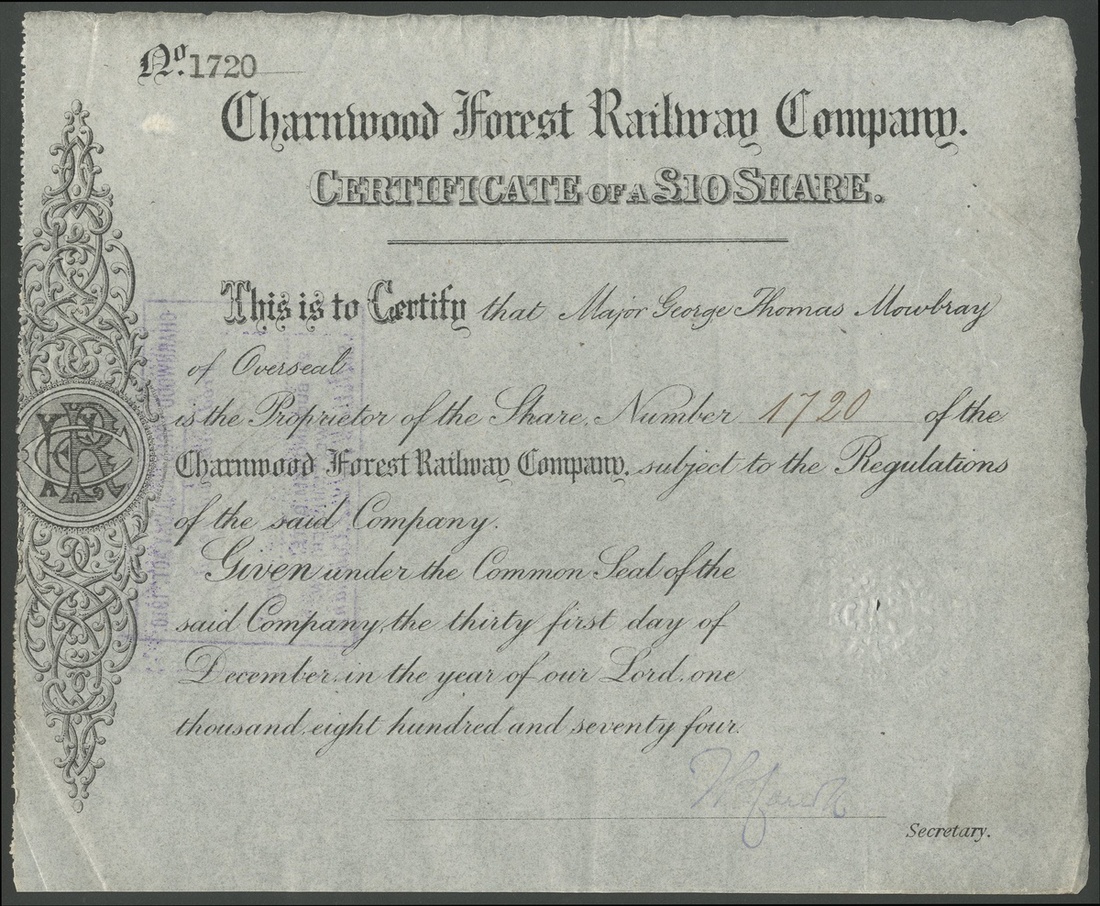 No. 1720
Charnwood Forest Railway Company.
CERTIFICATE OF A £10 SHARE.
This is to Certify that Major George Thomas Mowbray
of Overseal
is the Proprietor of the Share, Number 1720 of the
Charnwood Forest Railway Company, subject to the Regulations
of the said Company.
Given under the Common Seal of the
said Company, the thirty first day of
December, in the year of our Lord, one
thousand, eight hundred and seventy four.
Secretary.